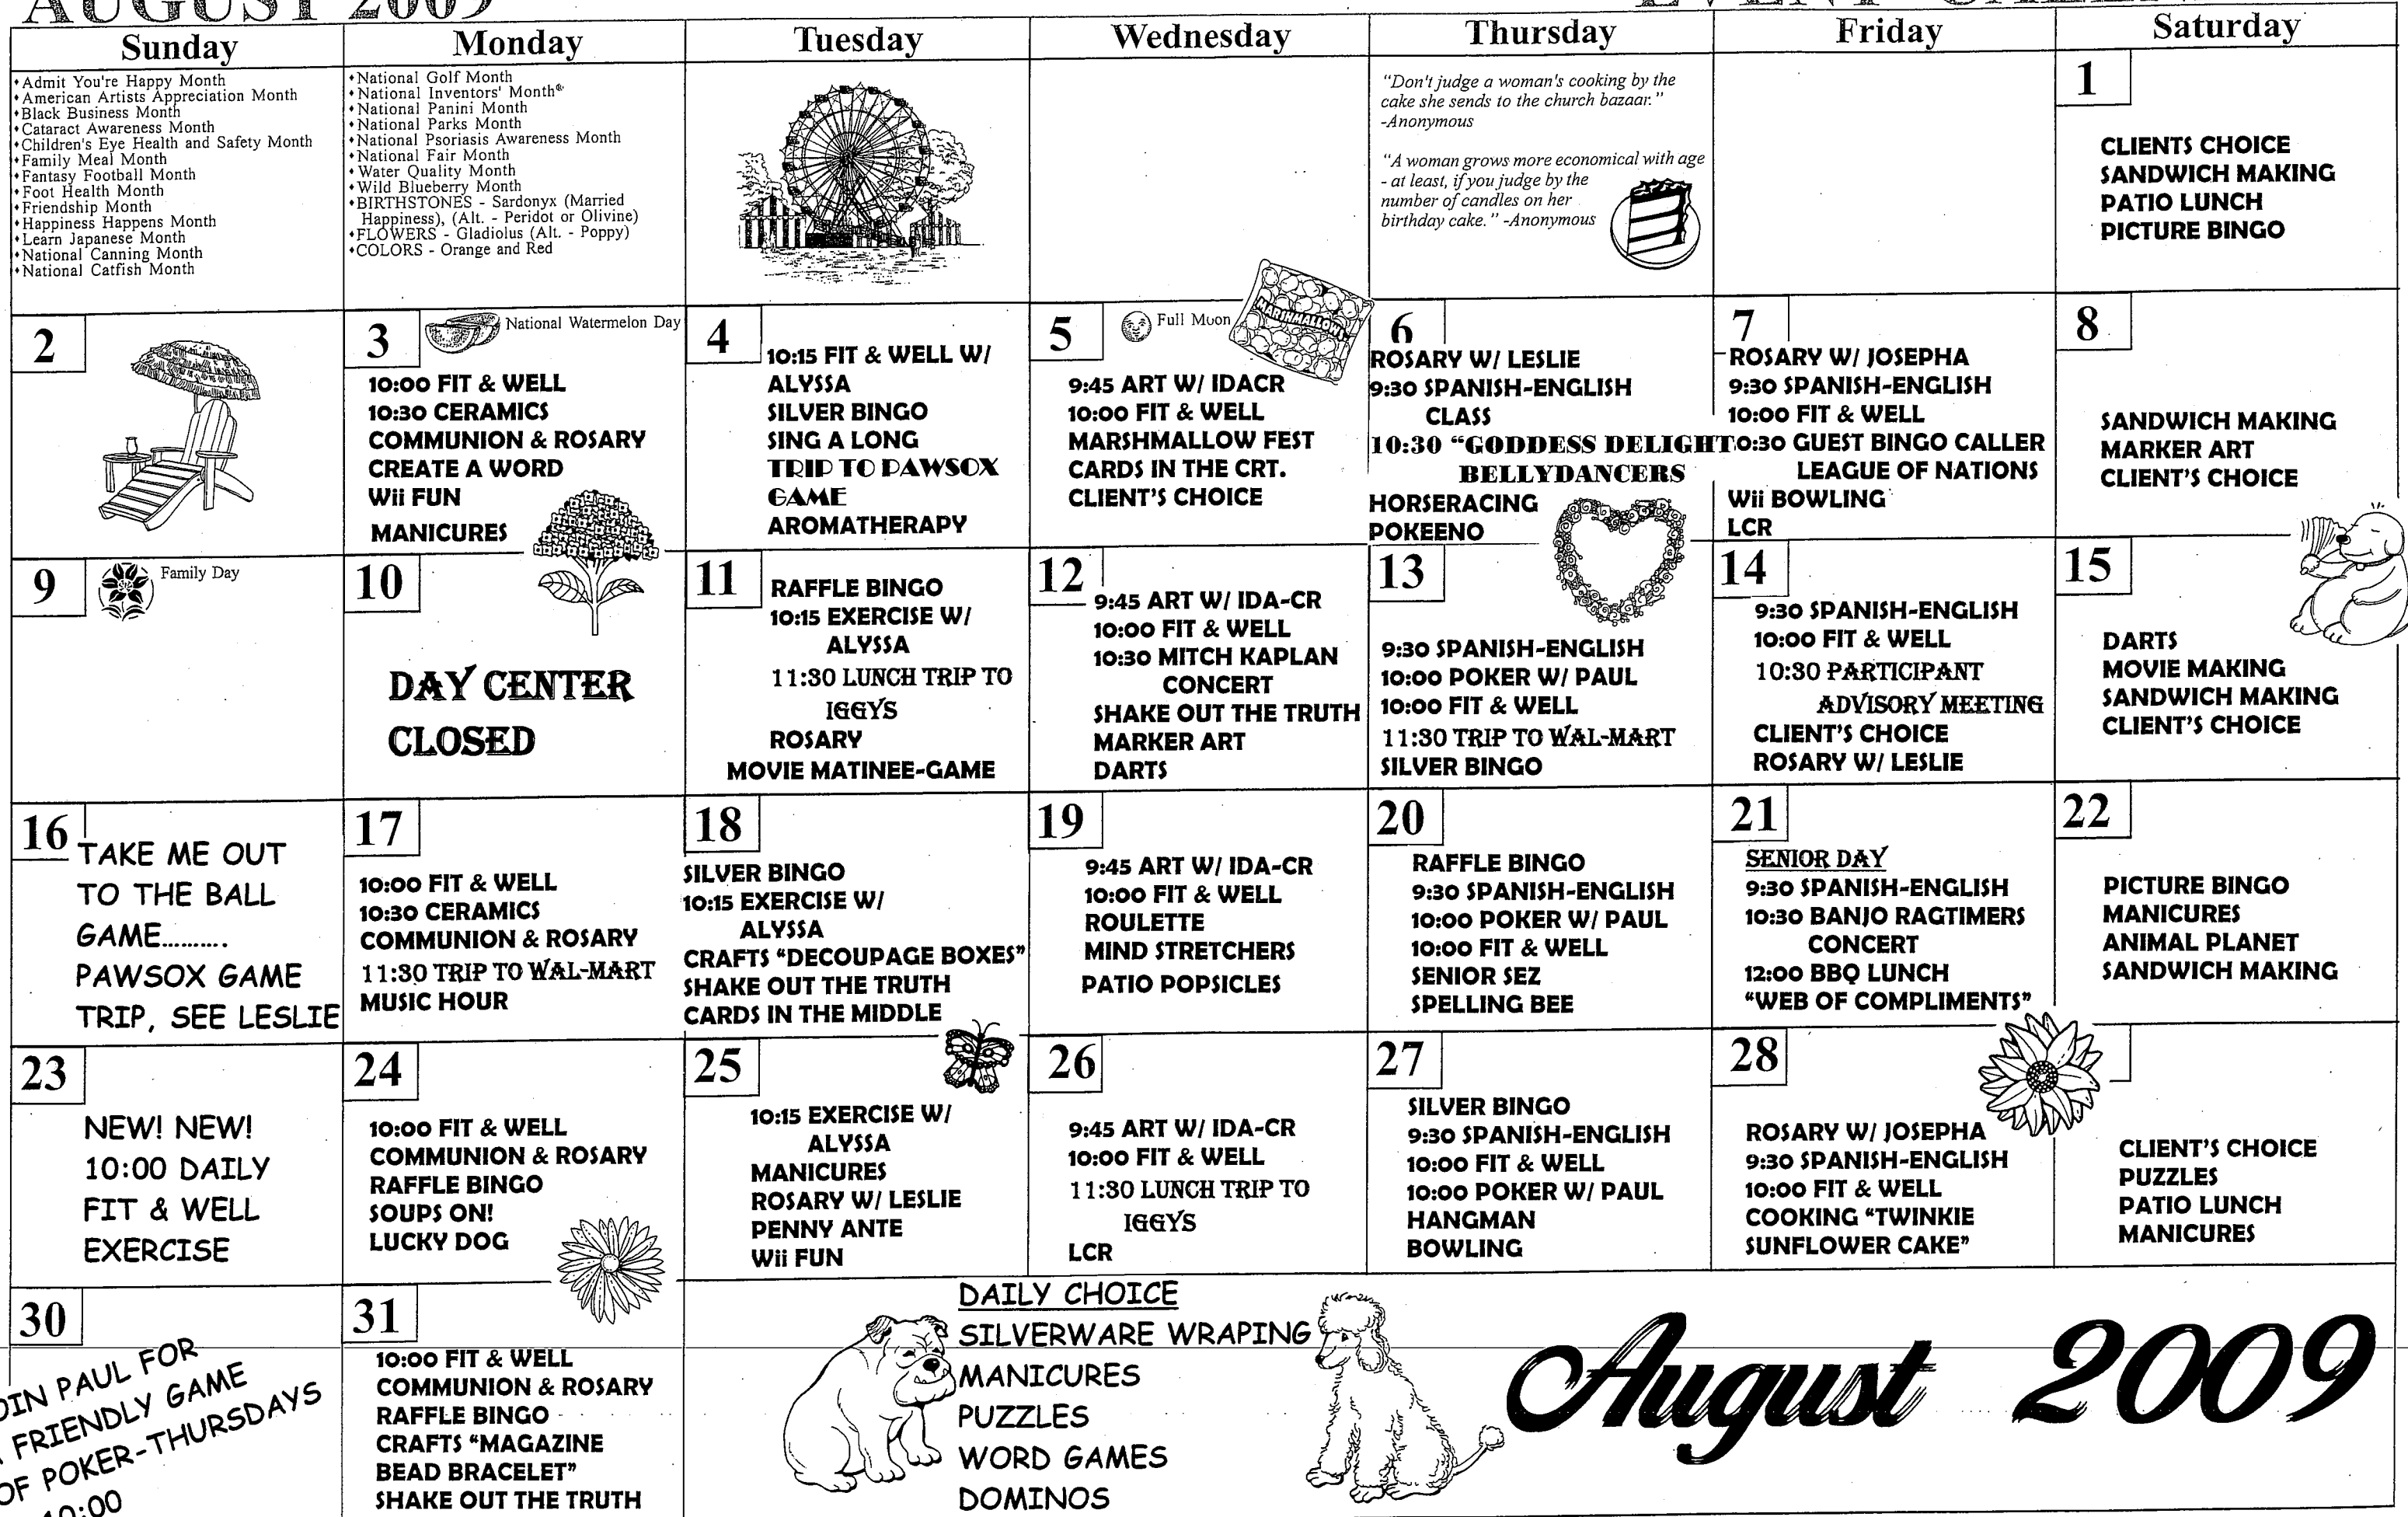 AUGUST 2009
EVENT
Sunday
Monday
Tuesday
Wednesday
Thursday
Friday
Saturday
•Admit You're Happy Month
•American Artists Appreciation Month
•Black Business Month
•Cataract Awareness Month
•Children's Eye Health and Safety Month
•Family Meal Month
•Fantasy Football Month
•Foot Health Month
•Friendship Month
•Happiness Happens Month
•Learn Japanese Month
•National Canning Month
•National Catfish Month
•National Golf Month
•National Inventors' Month®
•National Panini Month
•National Parks Month
•National Psoriasis Awareness Month
•National Fair Month
•Water Quality Month
•Wild Blueberry Month
•BIRTHSTONES - Sardonyx (Married
Happiness), (Alt. - Peridot or Olivine)
•FLOWERS - Gladiolus (Alt. - Poppy)
•COLORS - Orange and Red
"Don't judge a woman's cooking by the
cake she sends to the church bazaar."
-Anonymous
"A woman grows more economical with age
- at least, if you judge by the
number of candles on her
birthday cake." -Anonymous
1
CLIENTS CHOICE
SANDWICH MAKING
PATIO LUNCH
PICTURE BINGO
2
3
National Watermelon Day
10:00 FIT & WELL
10:30 CERAMICS
COMMUNION & ROSARY
CREATE A WORD
Wii FUN
MANICURES
4
10:15 FIT & WELL W/
ALYSSA
SILVER BINGO
SING A LONG
TRIP TO PAWSOX
GAME
AROMATHERAPY
5
Full Moon
MARSHMALLOWS
9:45 ART W/ IDACR
10:00 FIT & WELL
MARSHMALLOW FEST
CARDS IN THE CRT.
CLIENT'S CHOICE
6
ROSARY W/ LESLIE
9:30 SPANISH-ENGLISH
CLASS
10:30 "GODDESS DELIGHT
BELLYDANCERS
HORSERACING
POKEENO
7
ROSARY W/ JOSEPHA
9:30 SPANISH-ENGLISH
10:00 FIT & WELL
0:30 GUEST BINGO CALLER
LEAGUE OF NATIONS
Wii BOWLING
LCR
8
SANDWICH MAKING
MARKER ART
CLIENT'S CHOICE
9
Family Day
10
DAY CENTER
CLOSED
11
RAFFLE BINGO
10:15 EXERCISE W/
ALYSSA
11:30 LUNCH TRIP TO
IGGYS
ROSARY
MOVIE MATINEE-GAME
12
9:45 ART W/ IDA-CR
10:00 FIT & WELL
10:30 MITCH KAPLAN
CONCERT
SHAKE OUT THE TRUTH
MARKER ART
DARTS
13
9:30 SPANISH-ENGLISH
10:00 POKER W/ PAUL
10:00 FIT & WELL
11:30 TRIP TO WAL-MART
SILVER BINGO
14
9:30 SPANISH-ENGLISH
10:00 FIT & WELL
10:30 PARTICIPANT
ADVISORY MEETING
CLIENT'S CHOICE
ROSARY W/ LESLIE
15
DARTS
MOVIE MAKING
SANDWICH MAKING
CLIENT'S CHOICE
16
TAKE ME OUT
TO THE BALL
GAME..........
PAWSOX GAME
TRIP, SEE LESLIE
17
10:00 FIT & WELL
10:30 CERAMICS
COMMUNION & ROSARY
11:30 TRIP TO WAL-MART
MUSIC HOUR
18
SILVER BINGO
10:15 EXERCISE W/
ALYSSA
CRAFTS "DECOUPAGE BOXES"
SHAKE OUT THE TRUTH
CARDS IN THE MIDDLE
19
9:45 ART W/ IDA-CR
10:00 FIT & WELL
ROULETTE
MIND STRETCHERS
PATIO POPSICLES
20
RAFFLE BINGO
9:30 SPANISH-ENGLISH
10:00 POKER W/ PAUL
10:00 FIT & WELL
SENIOR SEZ
SPELLING BEE
21
SENIOR DAY
9:30 SPANISH-ENGLISH
10:30 BANJO RAGTIMERS
CONCERT
12:00 BBQ LUNCH
"WEB OF COMPLIMENTS"
22
PICTURE BINGO
MANICURES
ANIMAL PLANET
SANDWICH MAKING
23
NEW! NEW!
10:00 DAILY
FIT & WELL
EXERCISE
24
10:00 FIT & WELL
COMMUNION & ROSARY
RAFFLE BINGO
SOUPS ON!
LUCKY DOG
25
10:15 EXERCISE W/
ALYSSA
MANICURES
ROSARY W/ LESLIE
PENNY ANTE
Wii FUN
26
9:45 ART W/ IDA-CR
10:00 FIT & WELL
11:30 LUNCH TRIP TO
IGGYS
LCR
27
SILVER BINGO
9:30 SPANISH-ENGLISH
10:00 FIT & WELL
10:00 POKER W/ PAUL
HANGMAN
BOWLING
28
ROSARY W/ JOSEPHA
9:30 SPANISH-ENGLISH
10:00 FIT & WELL
COOKING "TWINKIE
SUNFLOWER CAKE"
CLIENT'S CHOICE
PUZZLES
PATIO LUNCH
MANICURES
30
OIN PAUL FOR
FRIENDLY GAME
OF POKER-THURSDAYS
10:00
31
10:00 FIT & WELL
COMMUNION & ROSARY
RAFFLE BINGO
CRAFTS "MAGAZINE
BEAD BRACELET"
SHAKE OUT THE TRUTH
DAILY CHOICE
SILVERWARE WRAPING
MANICURES
PUZZLES
WORD GAMES
DOMINOS
August 2009